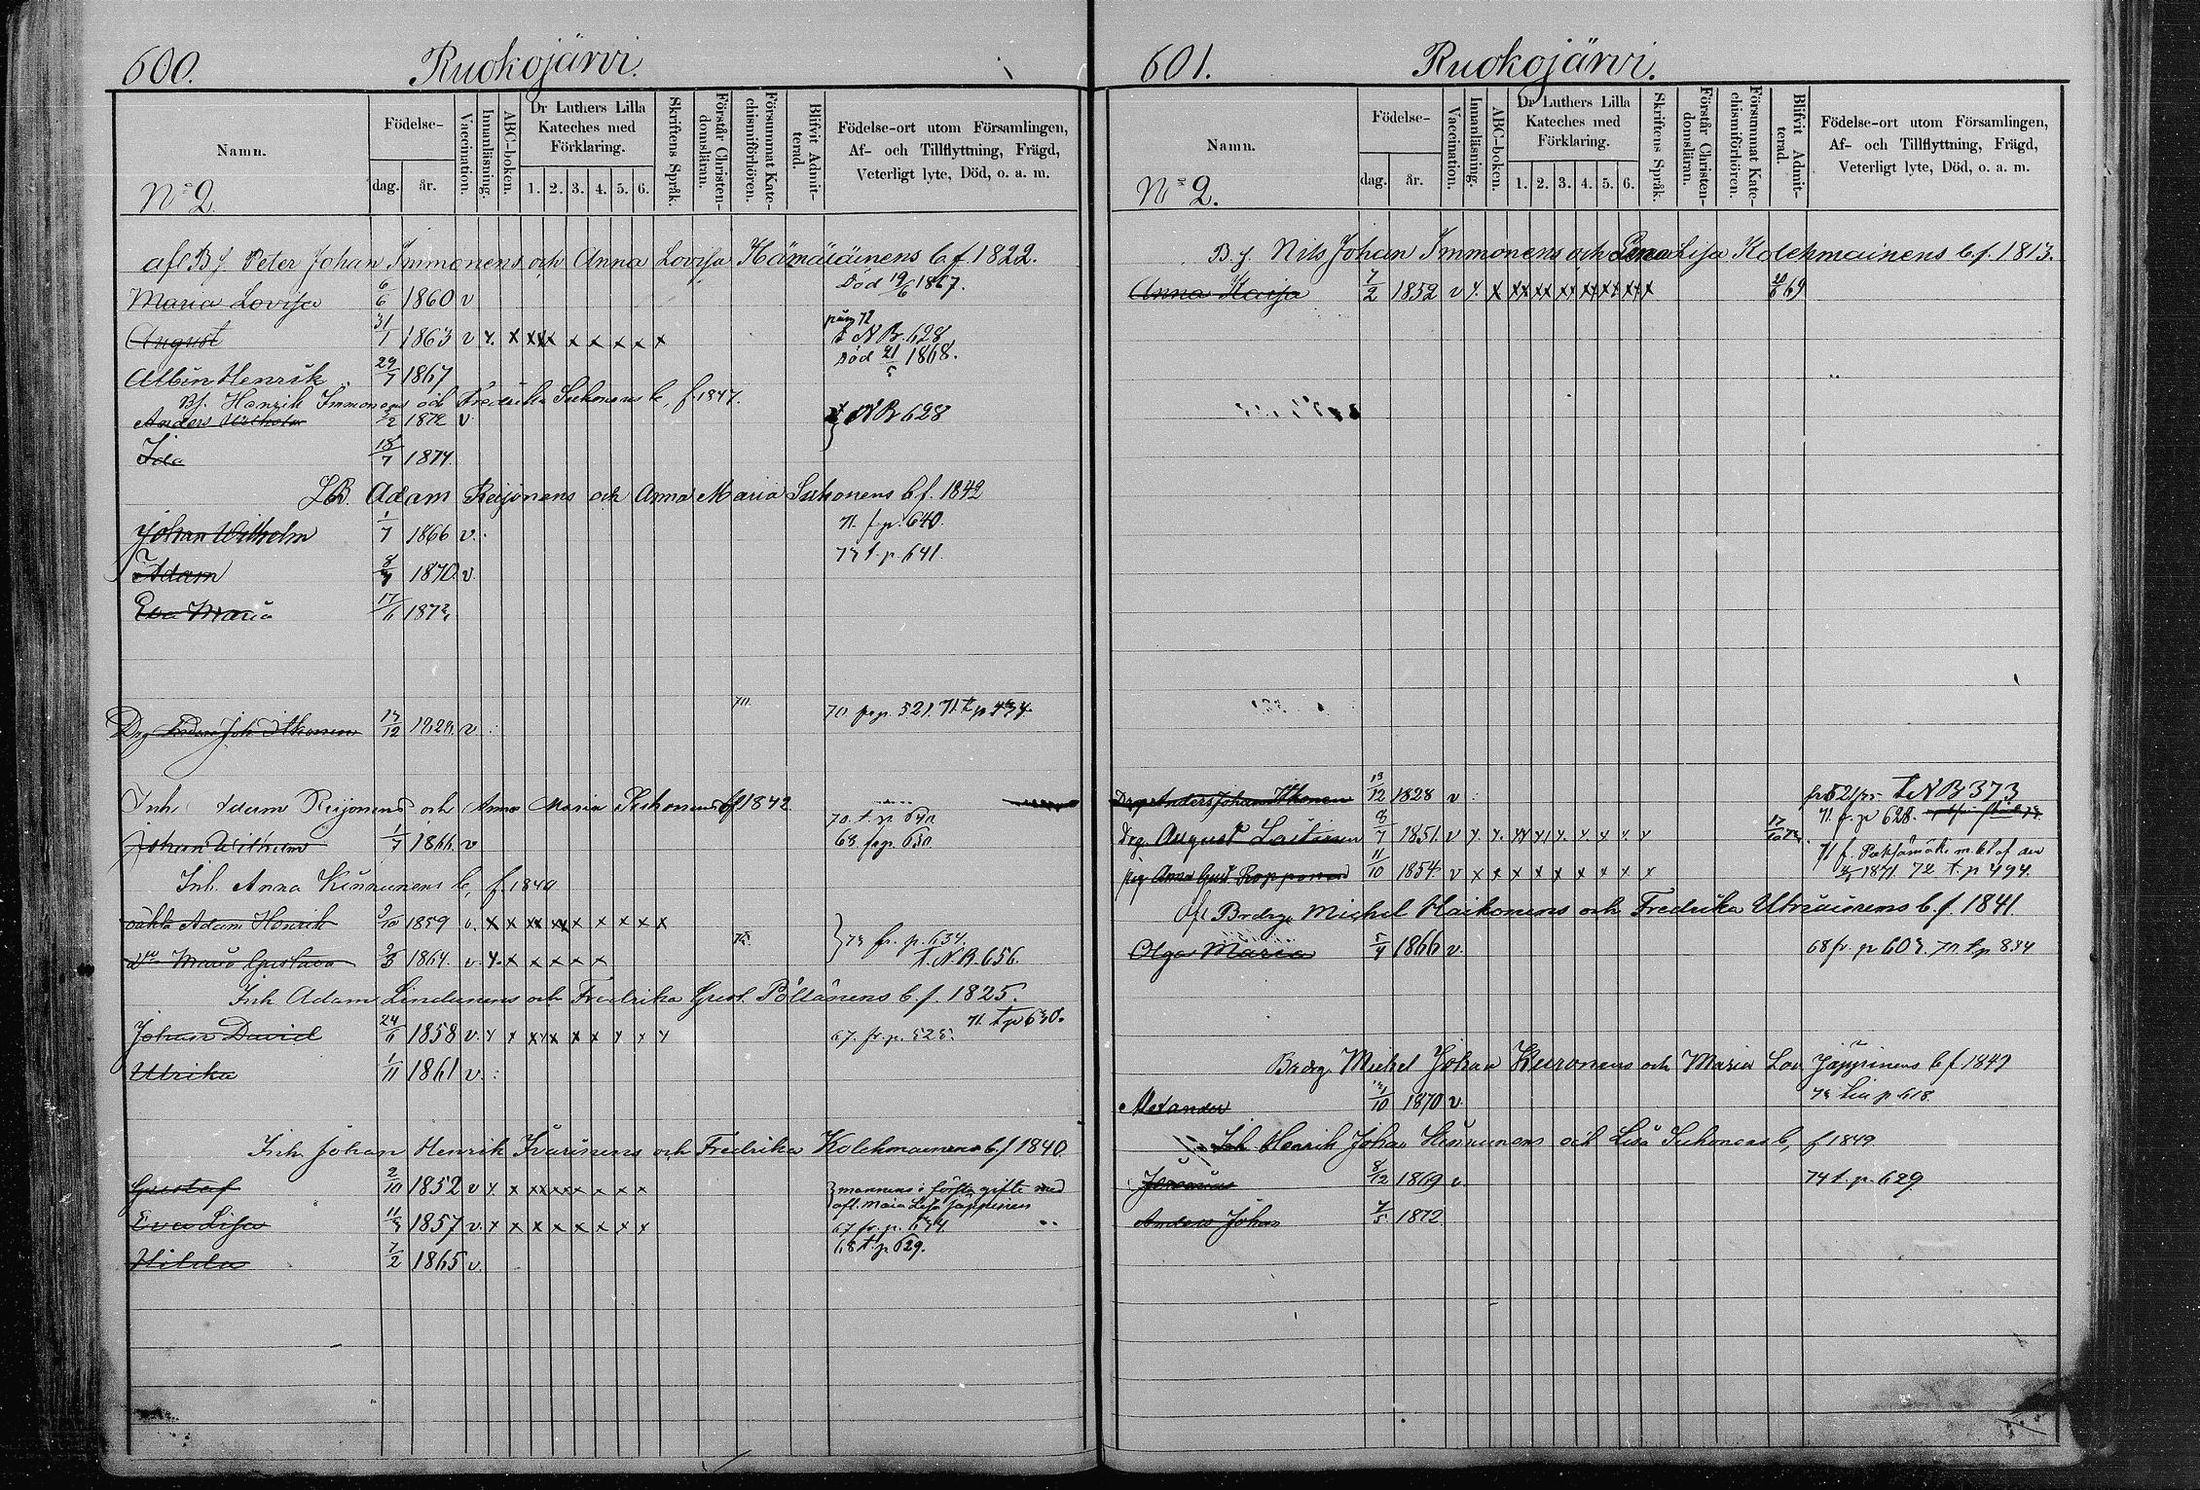 600.
Ruokojärvi.
Namn.
Födelse-
dag.
år.
Vaccination.
Innanläsning.
ABC-boken.
Dr Luthers Lilla Kateches med Förklaring.
1. 2. 3. 4. 5. 6.
Skriftens Språk.
Förstår Christendomsläran.
Försummat Katechismiförhören.
Blifvit Admitterad.
Födelse-ort utom Församlingen, Af- och Tillflyttning, Frägd, Veterligt lyte, Död, o. a. m.
No 2.
afl. B f. Peter Johan Immonens och Anna Lovisa Hämäläinens b f 1822.
Maria Lovisa 6/6 1860 v Död 19/6 1867.
August 31/1 1863 v x. x x x x x x x x x t N B. 628
Albin Henrik 29/7 1867 död 21/5 1868.
Bf. Henrik Immonens och Fredrika Suhonens b, f. 1847.
Anders Wilhelm 1/2 1872 v t N B 628
Ida 18/7 1874.
LB. Adam Reijonens och Anna Maria Suhonens b f. 1842
Johan Wilhelm 1/7 1866 v. 71. f. p. 640.
Adam 1870. v. 73 t. p. 641.
Eva Maria 17/6 187
Drg Anders Joh Itkonen 13/12 1828. v 70 fr p. 521. 71. t p 434.
Inh. Adam Reijonens och Anna Maria Suhonens b f 1842
Johan Wilhelm 1/7 1866. v 68. fr p. 650
Inh. Anna Kinnunens b, f 1840
oäkta Adam Henrik 9/10 1859 v. x x x x x x x x x x
dto Maria Gustava 1864. v. x. x x x x x 73 fr. p. 634. t. N. B. 656.
Inh Adam Lindunens och Fredrika Gust. Pöllänens b f. 1825.
Johan David 24/6 1858 v. x x x x x x x x x x 67. fr. p. 525. 71. t p 630.
Ulrika 1/11 1861 v.
Inh. Johan Henrik Ivarinens och Fredrika Kolehmainens b. f 1840.
Gustaf 2/10 1852 v x. x x x x x x x x mannens i första gifte med afl. Maria Lisa Jäppinen
Eva Lisa 1857 v. x x x x x x x x x 67. fr. p. 674
Hilda 7/2 1865 v. 68 t p 629.
601.
Ruokojärvi.
Namn.
Födelse-
dag.
år.
Vaccination.
Innanläsning.
ABC-boken.
Dr Luthers Lilla Kateches med Förklaring.
1. 2. 3. 4. 5. 6.
Skriftens Språk.
Förstår Christendomsläran.
Försummat Katechismiförhören.
Blifvit Admitterad.
Födelse-ort utom Församlingen, Af- och Tillflyttning, Frägd, Veterligt lyte, Död, o. a. m.
No 2.
B f. Nils Johan Immonens och Lisa Kolehmainens b f. 1813.
Anna Kaisa 7/2 1852 v x. x x x x x x x x 69
Drg Anders Johan Itkonen 13/12 1828 v t N B 373
Drg. August Laitinen 8/7 1851. v x x. x x x x x x x 17/10 71. fr. p 628.
pig Anna Gust Ropponen 11/10 1854 v x x x x x x x x x 71 f. Pieksämäki m. bet af den 1871 72 t. p 494.
Afl Brdrg. Michel Haikonens och Fredrika Utriainens b. f. 1841.
Olga Maria 1866 v. 68 fr. p 603. 70 t p 834
Brdrg. Michel Johan Kuronens och Maria Lov. Jäppinens b f 1847
Alexander 1870 v. p 618
Inh Henrik Johan Kinnunens och Lisa Suhonens b, f 1849
8/12 1869 v 74 t. p. 629
Anders Johan 7/5 1872.